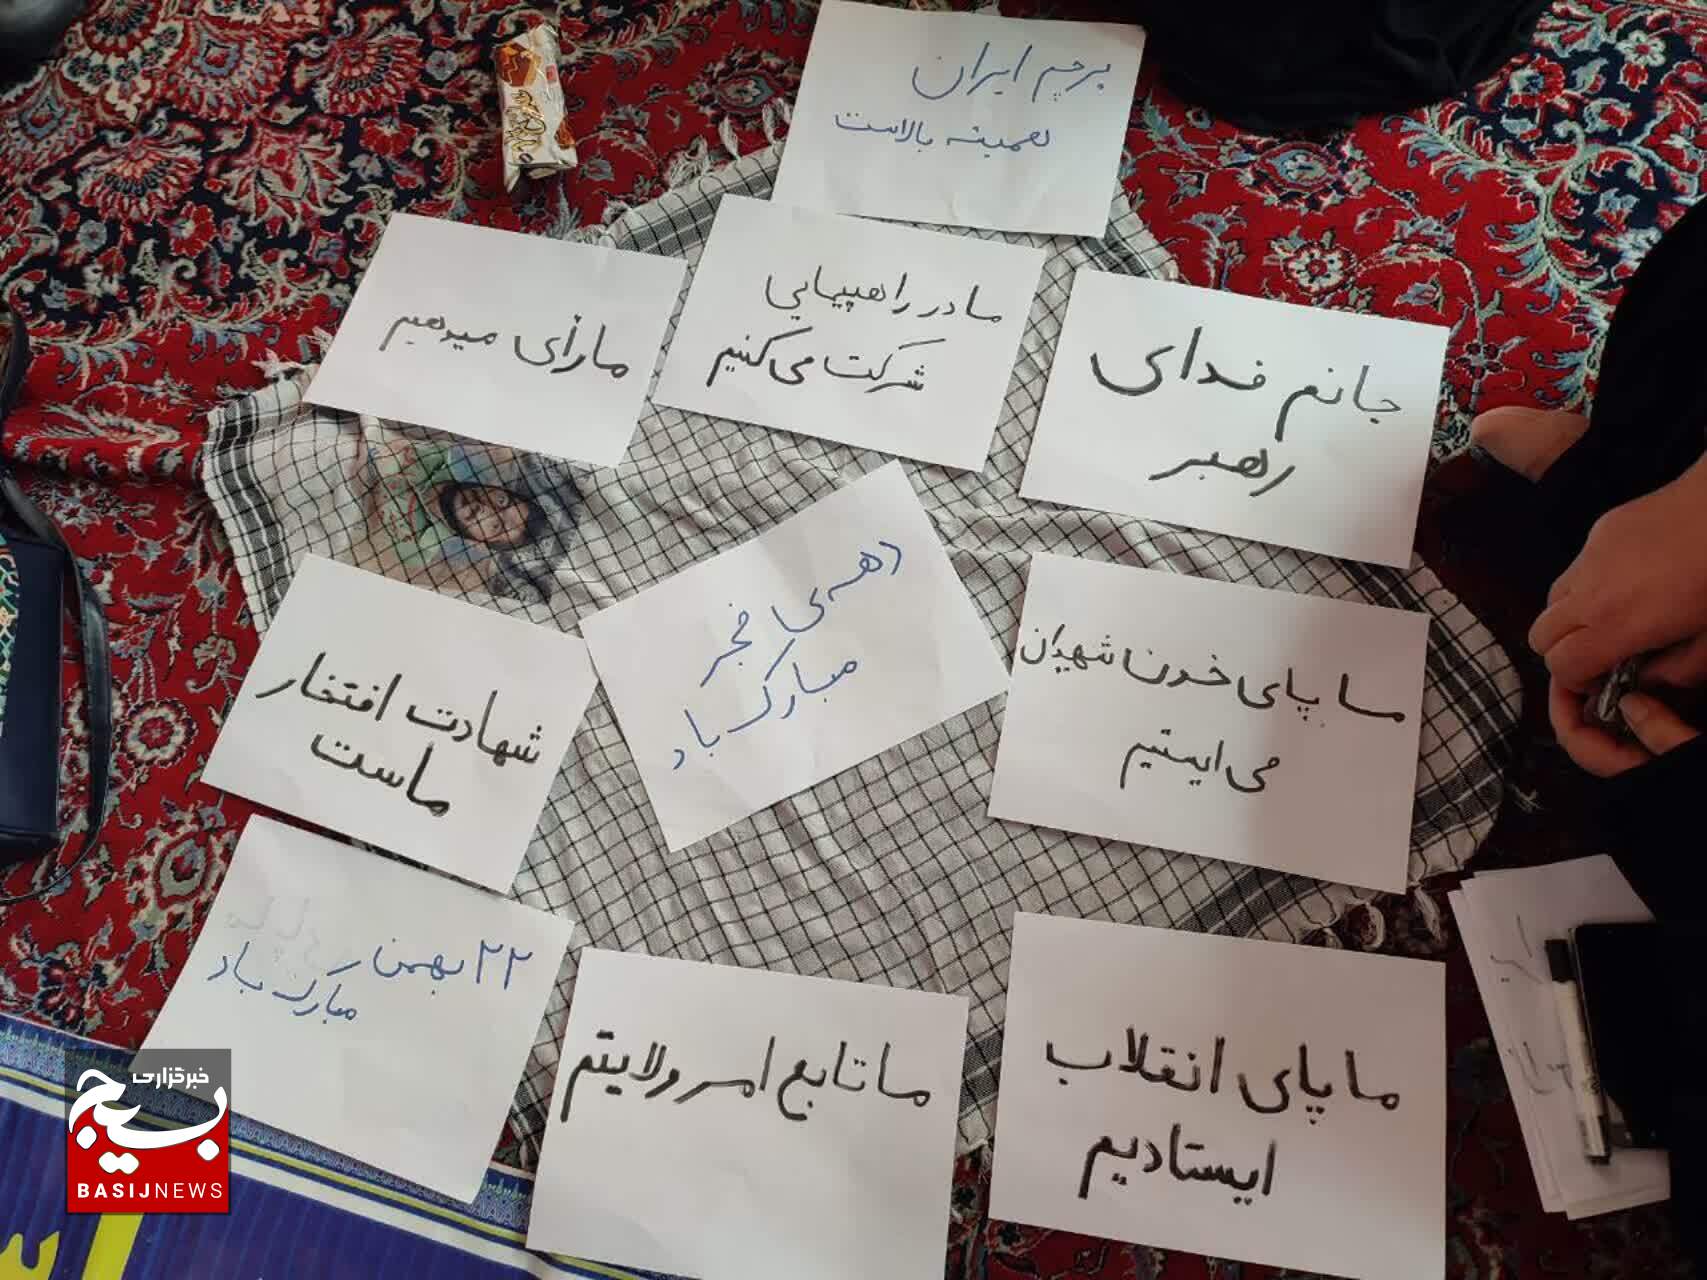 پرچم ایران
همیشه بالاست
ما در راهپیمایی
شرکت می‌کنیم
ما رأی میدهیم
جانم فدای
رهبر
دهه‌ی فجر
مبارک باد
ما پای خون شهیدان
می ایستیم
شهادت افتخار
ماست
۲۲ بهمن
مبارک باد
ما تابع امر ولایتم
ما پای انقلاب
ایستادیم
خبرگزاری
بسیج
BASIJNEWS